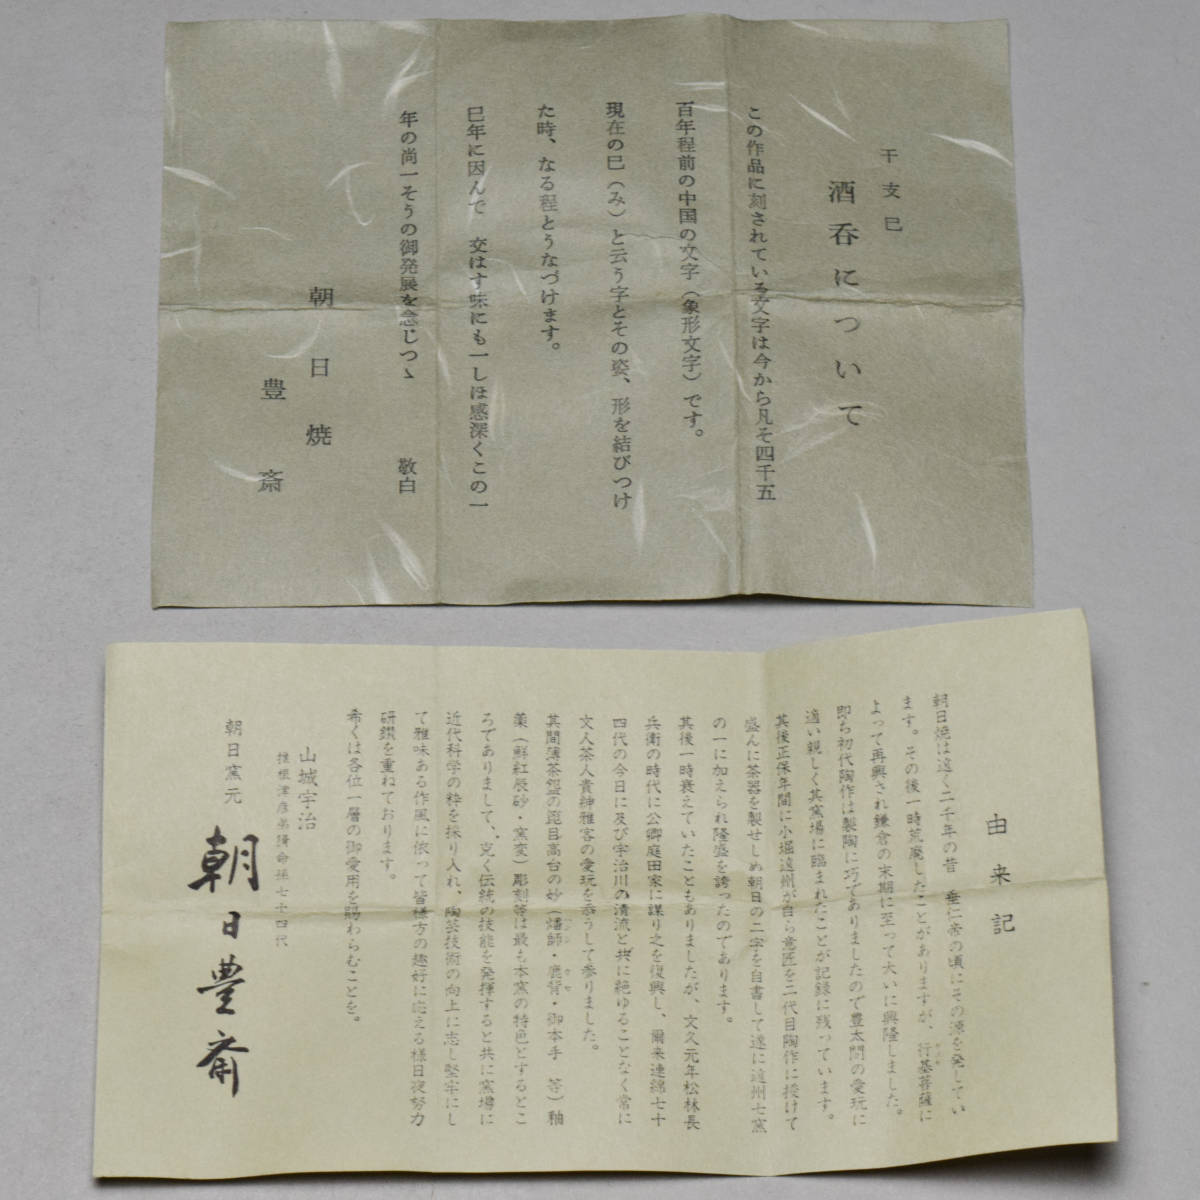 干支巳
酒呑について
この作品に刻されている文字は今から凡そ四千五
百年程前の中国の文字（象形文字）です。
現在の巳（み）と云う字とその姿、形を結びつけ
た時、なる程とうなづけます。
巳年に因んで　交はす味にも一しほ感深くこの一
年の尚一そうの御発展を念じつゝ
敬白
朝日焼
豊斎
由来記
朝日焼は遠く二千年の昔　垂仁帝の頃にその源を発してい
ます。その後一時荒廃したことがありますが、行基菩薩に
よって再興され鎌倉の末期に至って大いに興隆しました。
即ち初代陶作は製陶に巧でありましたので豊太閤の愛玩に
適い親しく其窯場に臨まれたことが記録に残っています。
其後正保年間に小堀遠州が自ら意匠を二代目陶作に授けて
盛んに茶器を製せしめ朝日の二字を自書して遂に遠州七窯
の一に加えられ隆盛を誇ったのであります。
其後一時衰えていたこともありましたが、文久元年松林長
兵衛の時代に公卿庭田家に謀り之を復興し、爾来連綿七十
四代の今日に及び宇治川の清流と共に絶ゆることなく常に
文人茶人貴紳雅客の愛玩を恭うして参りました。
其間薄茶盌の箆目高台の妙（燔師・鹿背・御本手　等）釉
薬（鮮紅辰砂・窯変）彫刻等は最も本窯の特色とするとこ
ろでありまして、克く伝統の技能を発揮すると共に窯場に
近代科学の粋を採り入れ、陶芸技術の向上に志し堅牢にし
て雅味ある作風に依って皆様方の趣好に応える様日夜努力
研鑽を重ねております。
希くは各位一層の御愛用を賜わらむことを。
山城宇治
椎根津彦弟猪命孫七十四代
朝日窯元
朝日豊斎